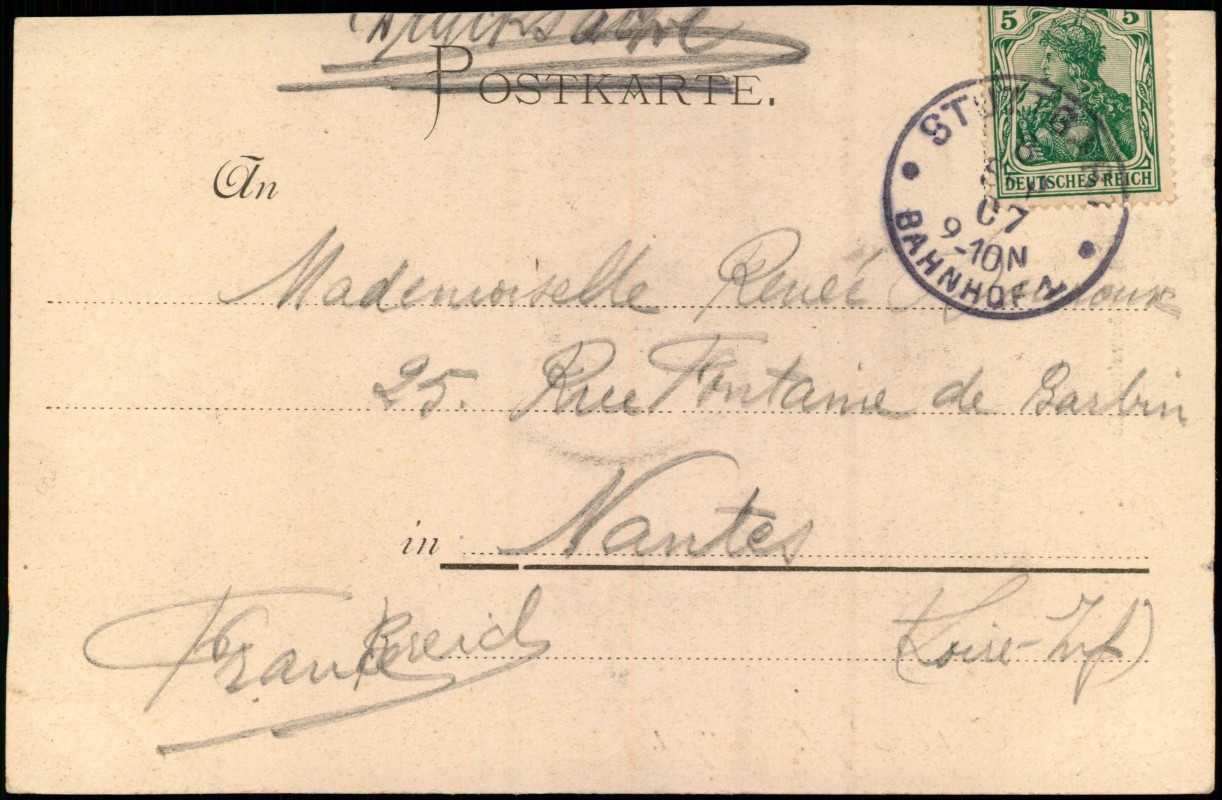 Drucksache
POSTKARTE.
5 5
DEUTSCHES REICH
STUTTGART
07
9-10N
BAHNHOF
An
Mademoiselle Renée
25. Rue Fontaine de Barbin
in Nantes
Frankreich (Loire-Inf)